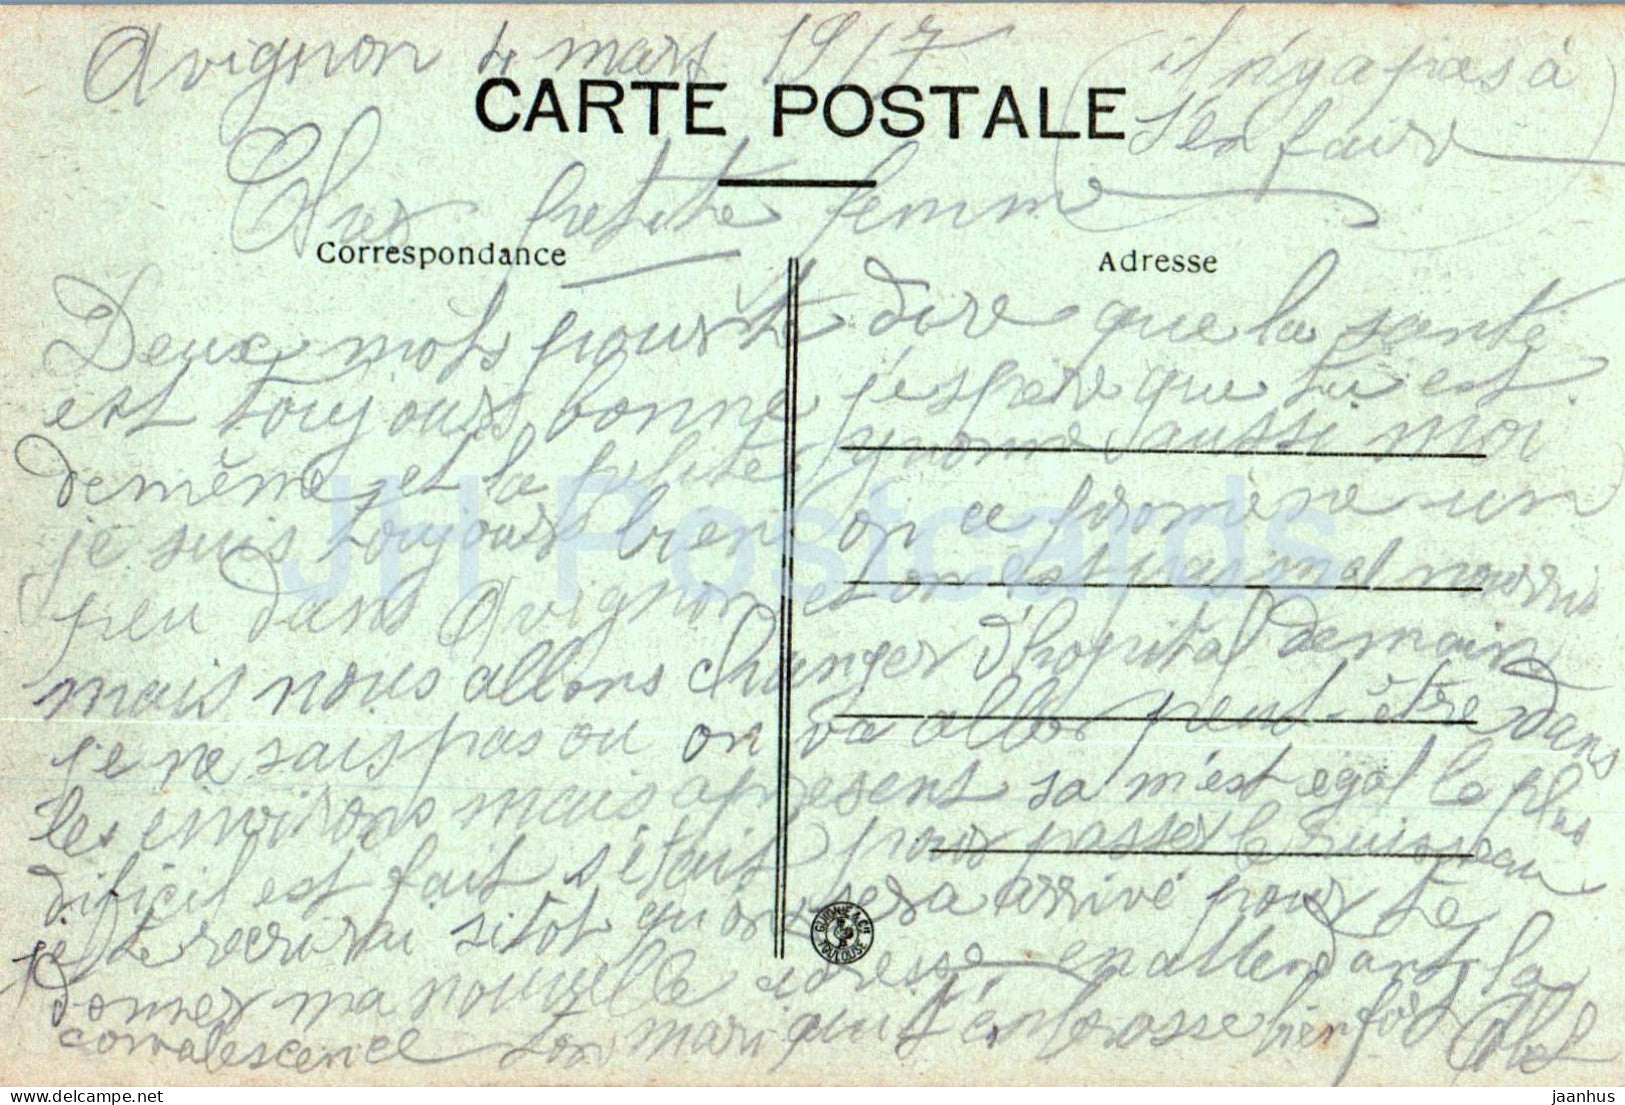 Avignon 4 mars 1917
(il n'y a pas à
s'en faire)
CARTE POSTALE
Cher petite femme
Correspondance
Adresse
Deux mots pour te dire que la santé
est toujours bonne j'espère que tu est
de même et la petite aussi moi
je suis toujours bien on ce promène un
peu dans Avignon et on est pas mal nourris
mais nous allons changer d'hopital demain
je ne sais pas ou on va aller peut-être dans
les environs mais apresent sa m'est egal le plus
dificil est fait s'était pour passer le ruisseau
je te recrirai sitôt qu'on sera arrivé pour te
donner ma nouvelle adresse en attendant la
convalescence ton mari qui t'embrasse bien fort
Abel
GUIONIE & Cie TOULOUSE
JH Postcards
jaanhus
delcampe.net